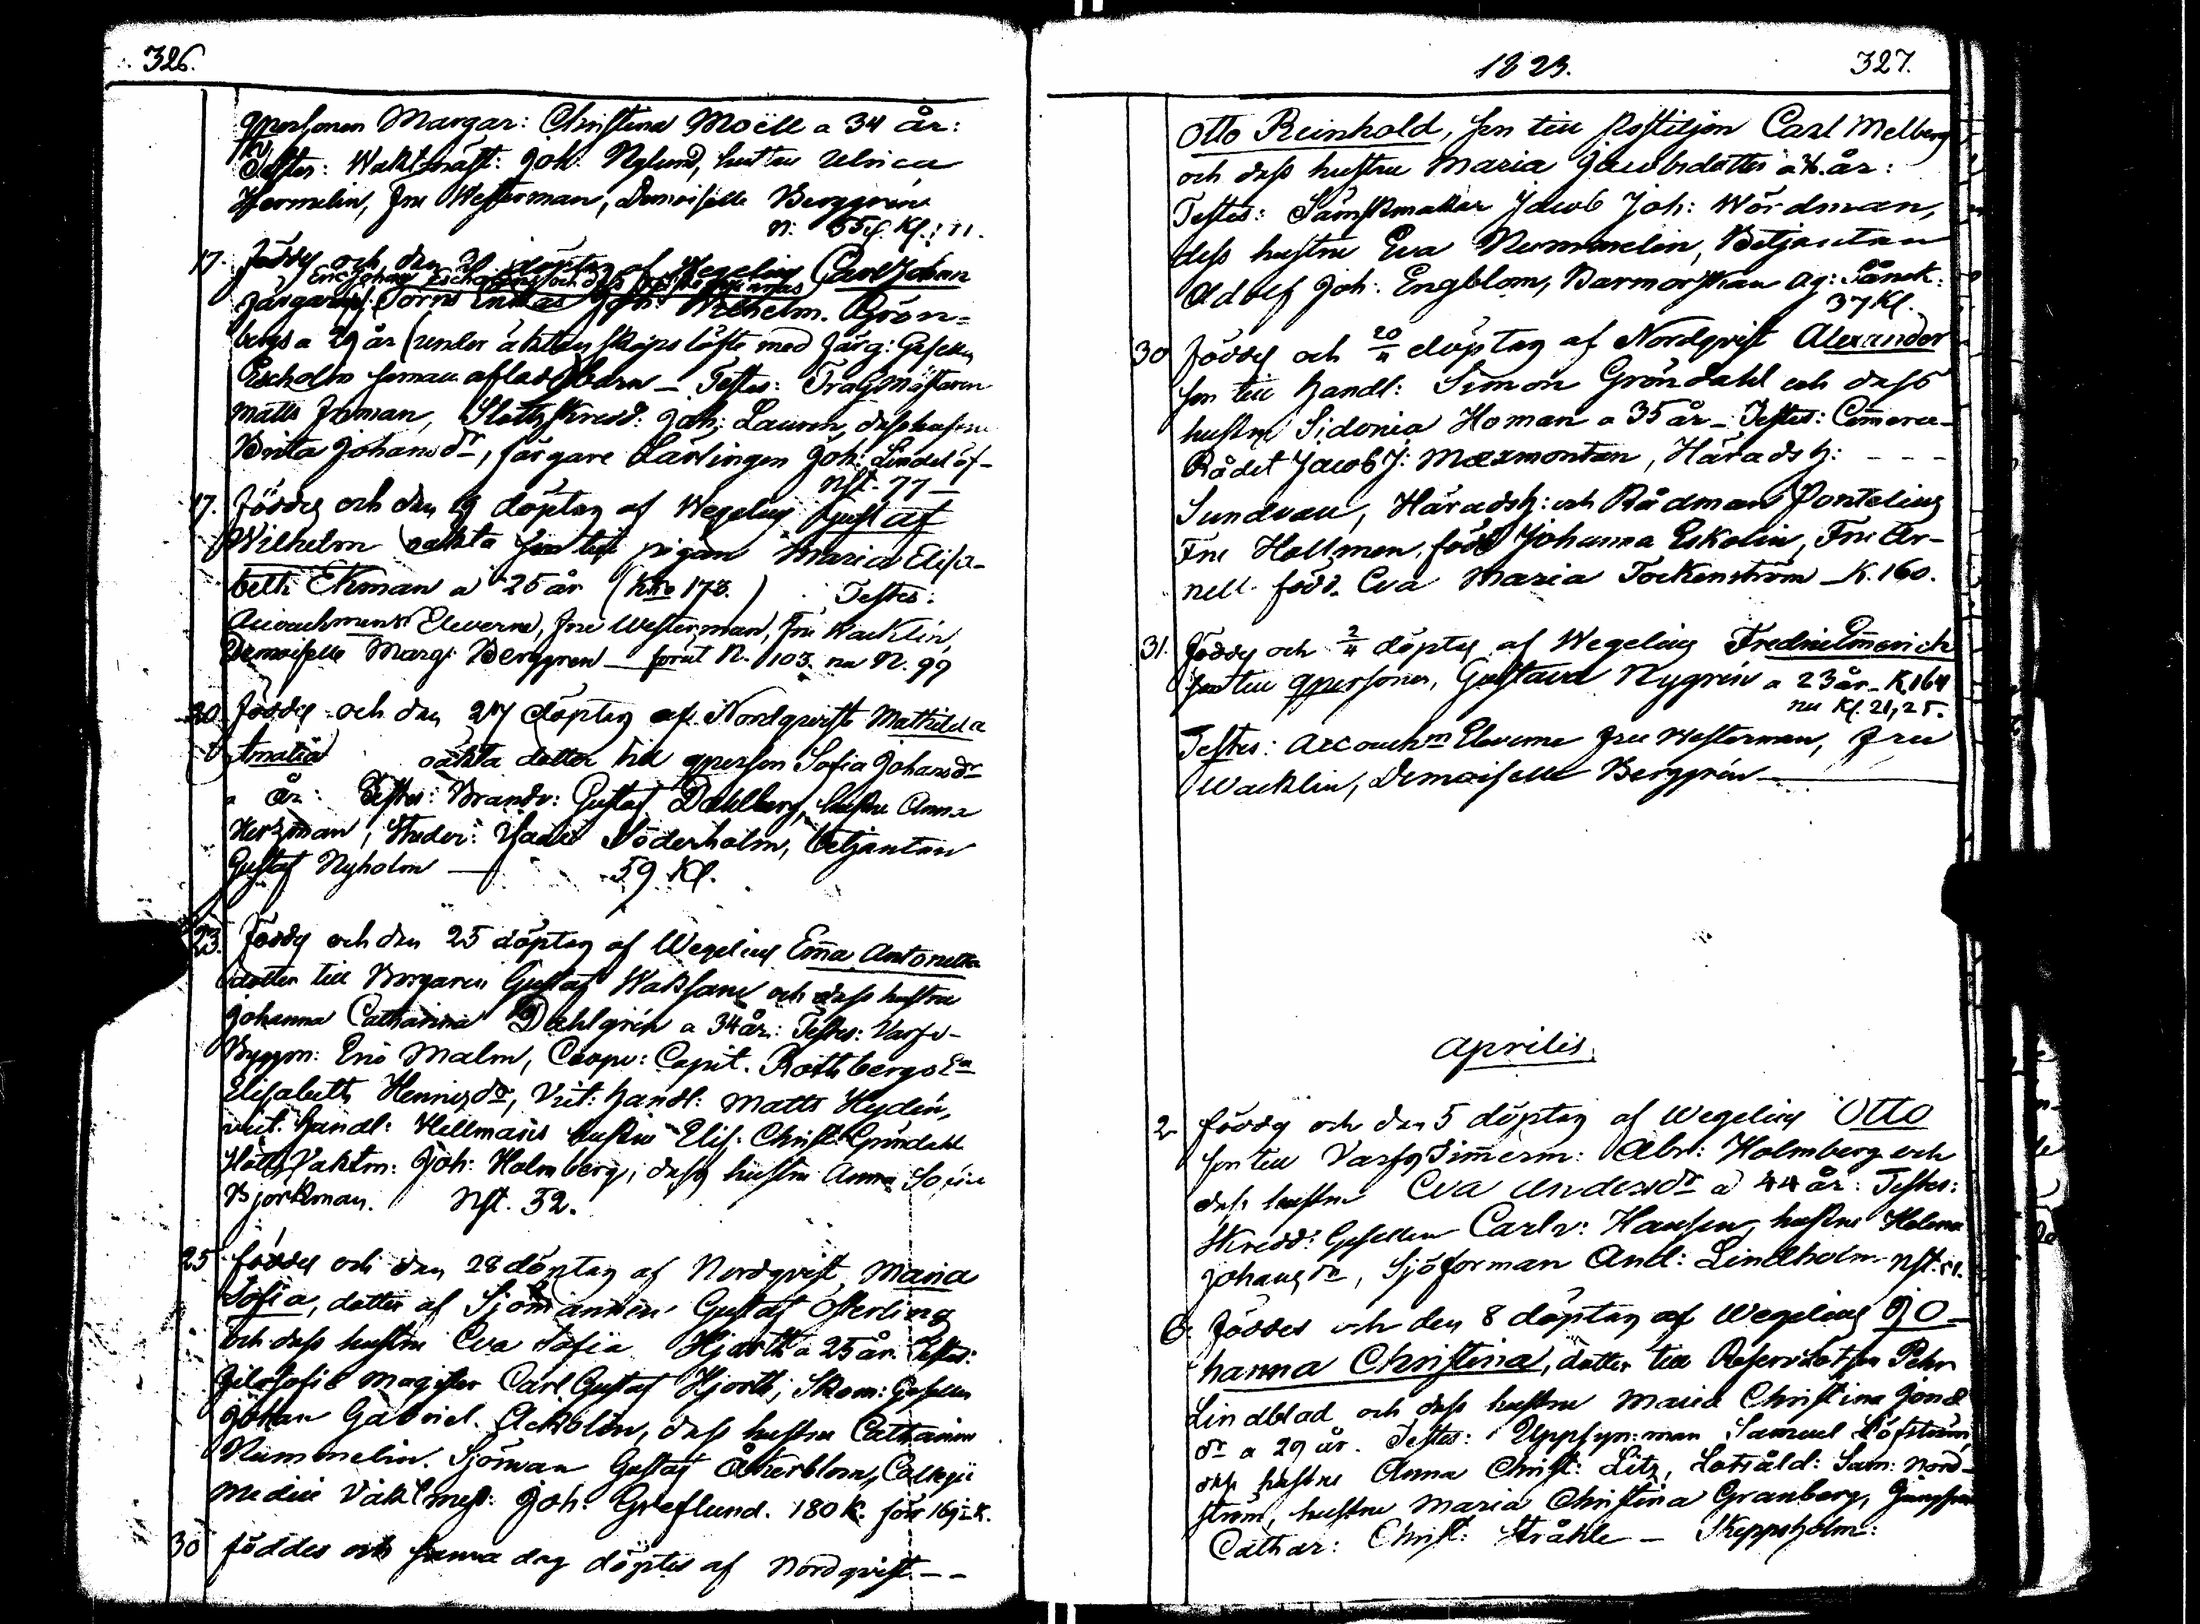 326.
qpersonen Margar: Christina Moëll a 34 år:
Testes: Waktmäst: Joh: Nylund, hustru Ulrica
Hermelin, Fru Westerman, Demoiselle Berggrén
N: 55 Kl:
17. Föddes och den 20 döptes af Wegelius Carl Johan
Eric Johan Eschholms och dess
Färgaren Joh: Wilhelm. Grön=
bergs a 29 år (under äktenskaps löfte med Färg: Gesellen
Escholm samman aflad) barn _ Testes: Trägmästaren
Matts Inman, Slottsskredd: Joh: Lauren, dess hustru
Brita Johansdr, färgare Lärlingen Joh: Lindelöf_
Nst. 77 _
17. Föddes och den 19 döptes af Wegelius Gustaf
Wilhelm oäkta son till pigan Maria Elisa-
beth Ekman a 25 år (Kko 173.) Testes:
Accouchments Eleverna, Fru Westerman, Fru Wacklin,
Demoiselle Marg: Berggren _ förut N. 103. nu N. 99
20 Föddes och den 24 döptes af Nordqvist Mathilda
Amalia oäkta dotter till qperson Sofia Johansdr
a år: Testes: Brandv: Gustaf Dahlberg, hustru Anna
Hertzman, Studer: Söderholm, betjenten
Gustaf Nyholm _ 59 Kl.
23. Föddes och den 25 döptes af Wegelius Em̄a Antonetta
dotter till Borgaren Gustaf Waksam och dess hustru
Johanna Catharina Dahlgrén a 34 år: Testes: Varfs-
Byggm: Eric Malm, Coopv: Capit. Rothbergs Ea
Elisabeth Henricsdr, Vict: handl: Matts Hydén,
vict. handl: Hellmans hustru Elis: Christ: Gröndahl
Vaktm: Joh: Holmberg, dess hustru Anna Sofia
Bjorkman. Nst. 52.
25 föddes och den 28 döptes af Nordqvist Maria
Sofia, dotter af Sjömannen Gustaf Österling
och dess hustru Eva Sofia Hjorth a 25 år. Testes:
Filosofie Magister Carl Gustaf Hjorth, Skom: Gesellen
Johan Gabriel Acklin, dess hustru Catharina
Nummelin. Sjöman Gustaf Åkerblom, Collegii
Medici Vaktmest: Joh: Greflund. 180 K. förr 169 K.
30 föddes och samma dag döptes af Nordqvist _ _
1823. 327.
Otto Reinhold, son till Postiljon Carl Melberg
och dess hustru Maria Jacobsdotter a 26 år:
Testes: Sämskmakar Jacob Joh: Wördman,
dess hustru Eva Nummelin, Betjenten
Adolf Joh: Engblom, Barmorskan Ag: Sånck:
37 Kl.
30 Föddes och 20/4 döptes af Nordqvist Alexander
son till handl: Simon Gröndahl och dess
hustru Sidonia Homan a 35 år _ Testes: Com̄erce-
Rådet Jacob J: Maxmontan, Häradsh: _ _ _
Sundvall, Häradsh: och Rådman Pontelius
Fru Holtzman, född Johanna Eskolin, Fru Ar-
nell. född. Eva Maria Tockenström _ K. 160.
31. Föddes och 2/4 döptes af Wegelius Fredric Em̄erich
son till qpersonen, Gustava Nygrén a 23 år _ K 164
nu Kl. 21, 25.
Testes: Accouchm Eleverne Fru Westerman, Fru
Wacklin, Demoiselle Berggrén
Aprilis.
2. föddes och den 5 döptes af Wegelius Otto
son till Varfs Tim̄erm: Abr: Holmberg och
dess hustru Eva Andersdr a 44 år: Testes:
Skredd: Gesellen Carl: Hansen, hustru Helena
Johansdr, Sjöforman And: Lindholm Nst. 51.
6. Föddes och den 8 döptes af Wegelius Jo_
hanna Christina, dotter till Reserv Lotsen Pehr
Lindblad och dess hustru Maria Christina Jons
dr a 29 år. Testes: Uppsyn:man Samuel Löfström,
dess hustru Anna Christ: Litz, Lotsåld: Sam: Nord-
ström, hustru Maria Christina Granberg, Jungfru
Cathar: Christ: Stråhle _ Skeppsholm: